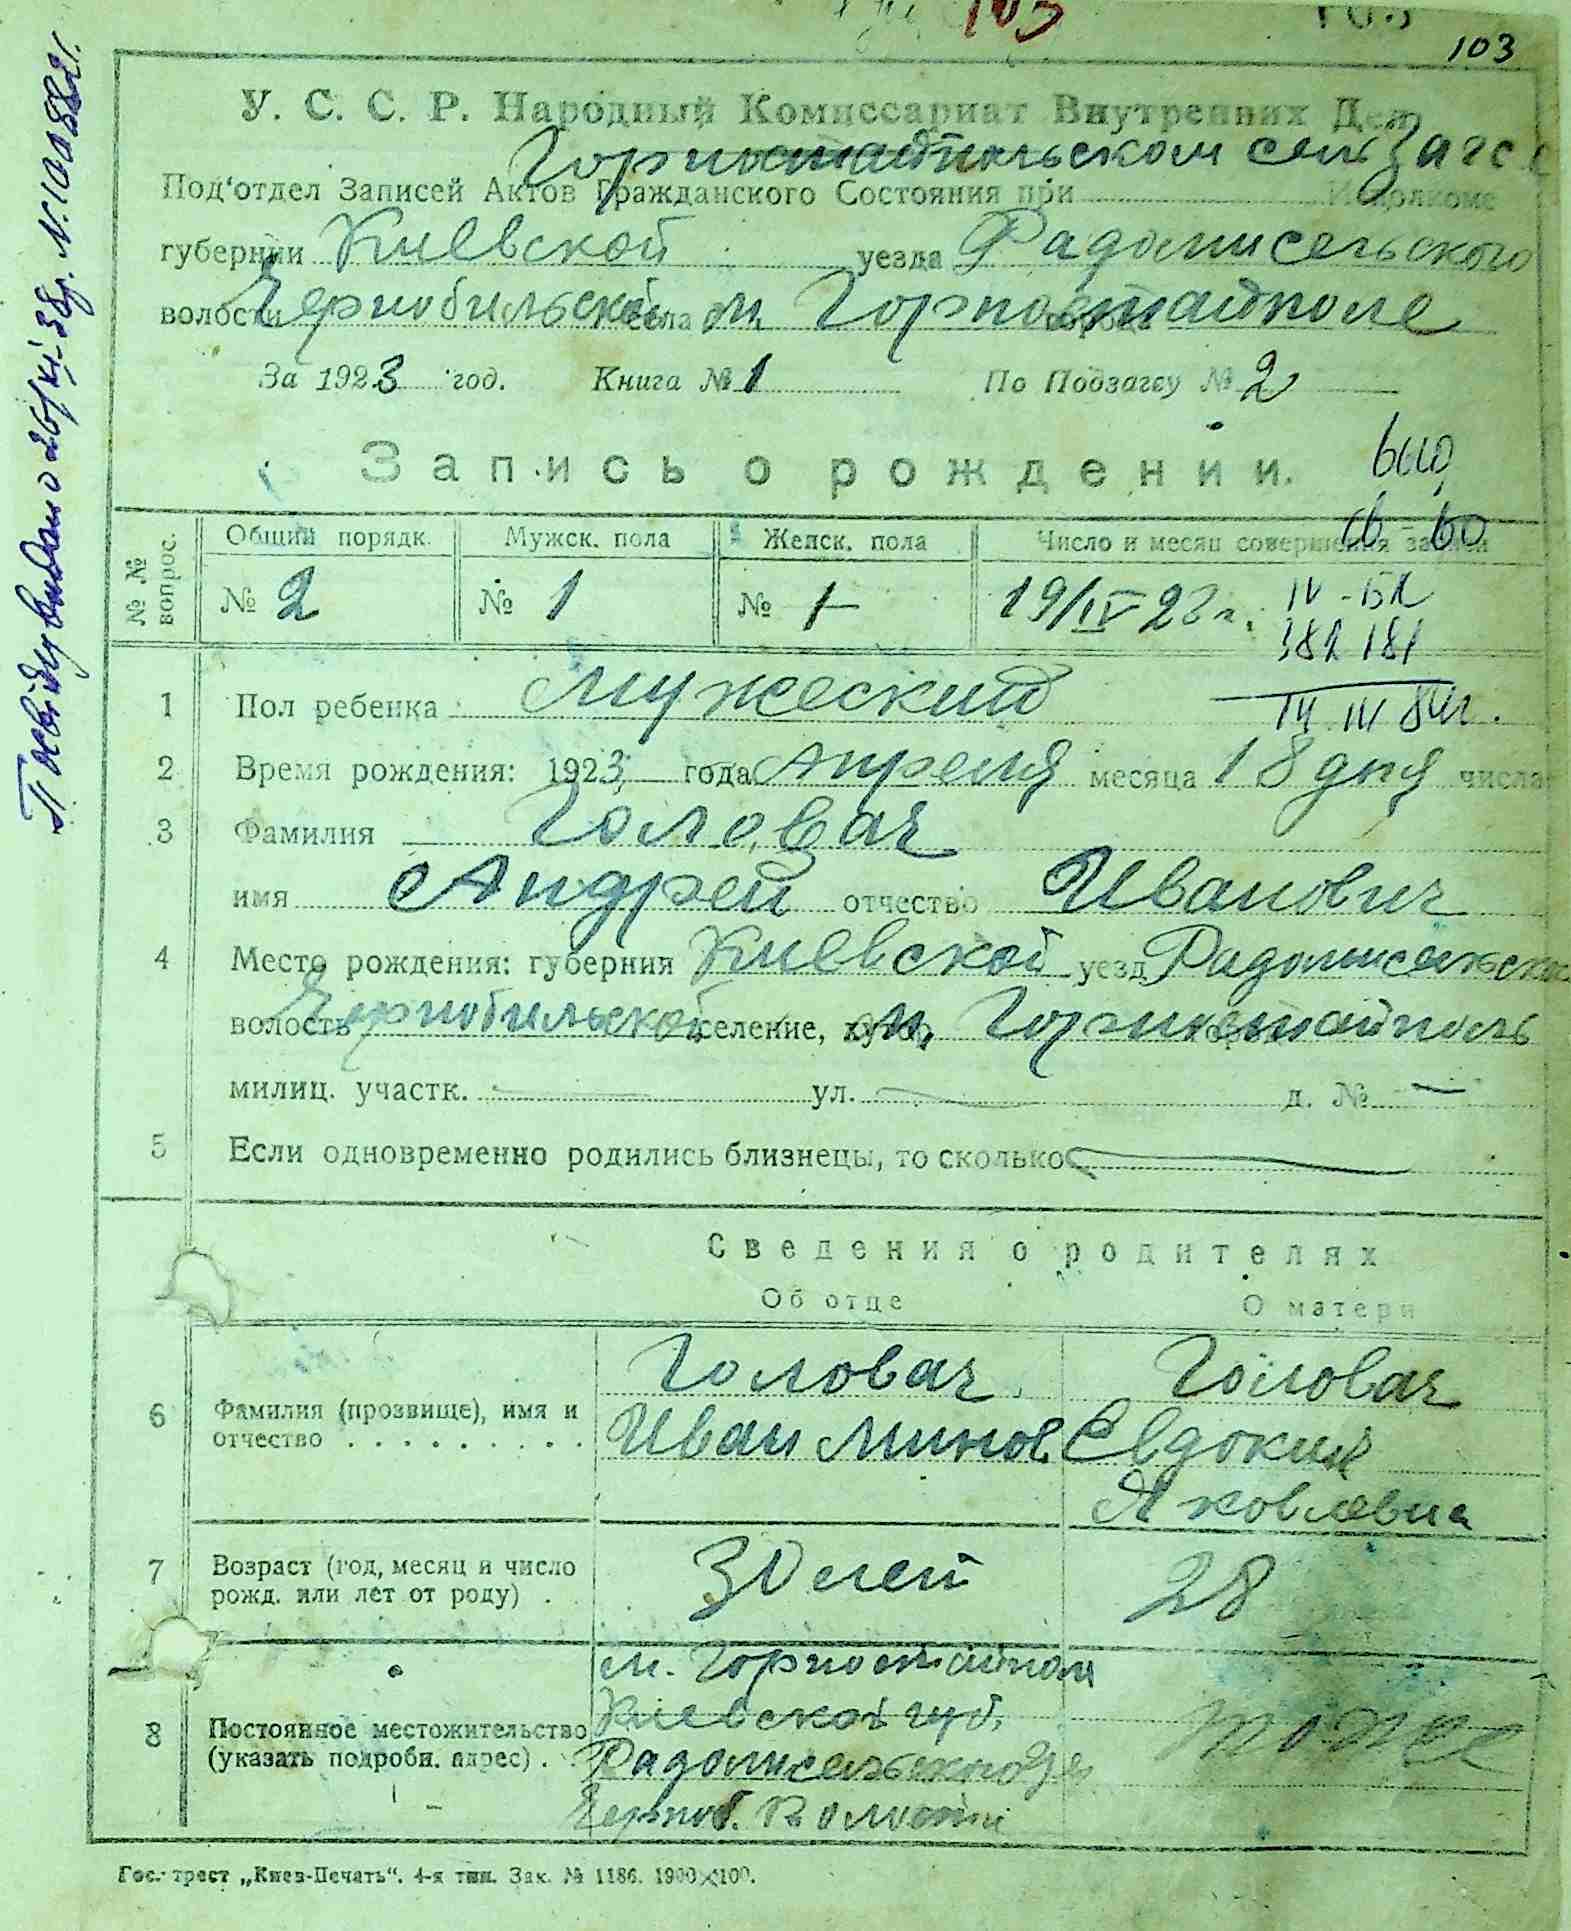 103
103
У. С. С. Р. Народный Комиссариат Внутренних Дел
Горностайпольском сель Загс
Под'отдел Записей Актов Гражданского Состояния при Исполкоме
губернии Киевской уезда Радомисельського
волости Чернобильской села м. Горностайполе
За 1923 год. Книга № 1 По Подзагсу № 2
Запись о рождении.
№ № вопрос. Общий порядк. Мужск. пола Женск. пола Число и месяц совершения записи
№ 2 № 1 № 1 19/IV 23 г.
1 Пол ребенка Мужеский
2 Время рождения: 1923 года Апреля месяца 18 дня числа
3 Фамилия Головач
имя Андрей отчество Иванович
4 Место рождения: губерния Киевской уезд Радомисельськ
волость Чернобильской селение, хутор м. Горностайполь
милиц. участк. — ул. — д. № —
5 Если одновременно родились близнецы, то сколько —
Сведения о родителях
Об отце О матери
Головач Головач
6 Фамилия (прозвище), имя и отчество Иван Минов Евдокия
Яковлевна
7 Возраст (год, месяц и число рожд. или лет от роду) 30 лет 28
м. Горностайпол
8 Постоянное местожительство Киевской губ.
(указать подробн. адрес) Радомисельського тоже
Черноб. Волости
Гос. трест „Киев-Печать". 4-я тип. Зак. № 1186. 1900×100.